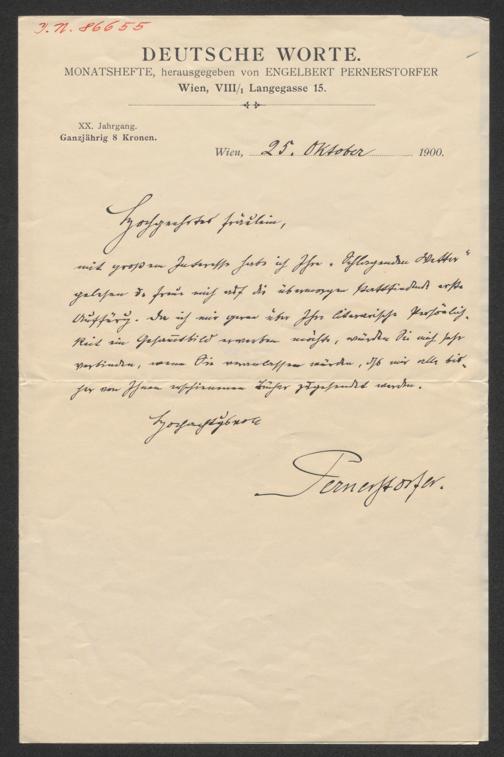 J. N. 86655
DEUTSCHE WORTE.
MONATSHEFTE, herausgegeben von ENGELBERT PERNERSTORFER
Wien, VIII/1 Langegasse 15.
XX. Jahrgang.
Ganzjährig 8 Kronen.
Wien, 25. Oktober 1900.
Hochgeehrtes Fräulein,
mit großem Interesse habe ich Ihre „Schlagenden Wetter“
gelesen u. freue mich auf die übermorgen stattfindende erste
Aufführg. Da ich mir gerne über Ihre literarische Persönlich-
keit ein Gesamtbild erwerben möchte, würden Sie mich sehr
verbinden, wenn Sie veranlassen würden, dß mir alle bis-
her von Ihnen erschienenen Bücher zugesendet werden.
Hochachtgsvoll
Pernerstorfer.